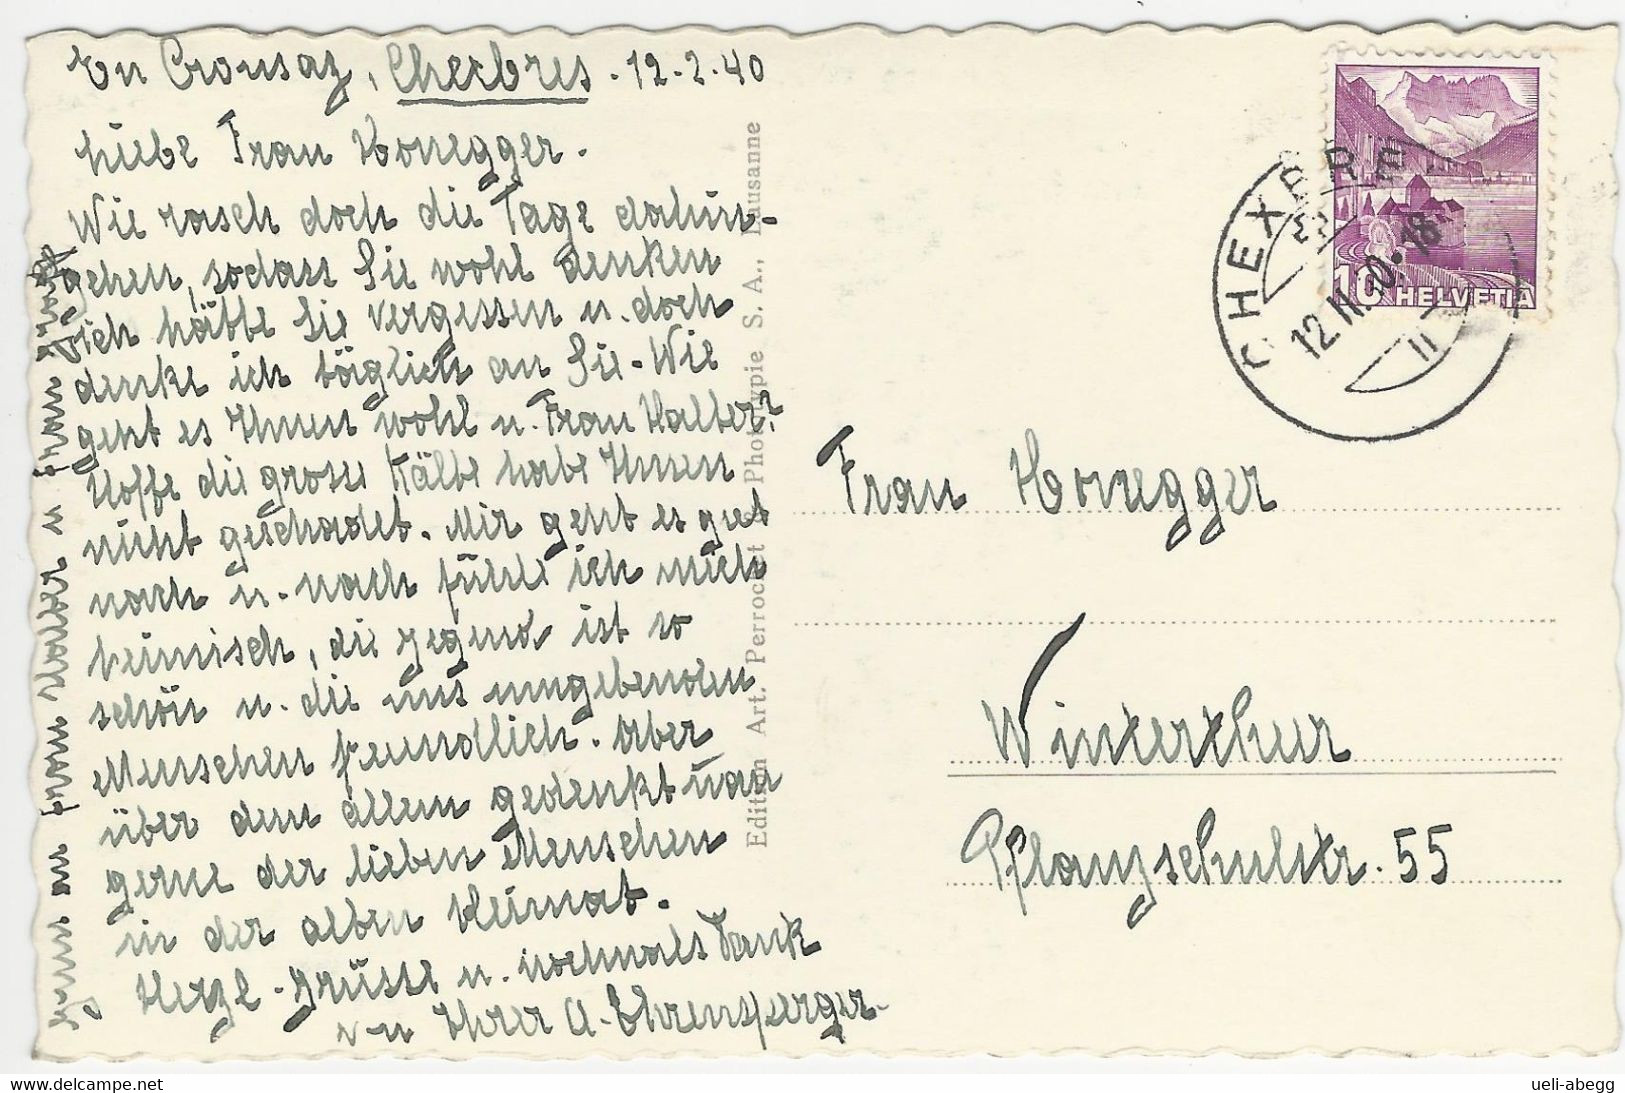 En Crousaz, Chexbres. 12.2.40
Liebe Frau Honegger.
Wie rasch doch die Tage dahin-
gehen, sodass Sie wohl denken
ich hätte Sie vergessen u. doch
denke ich täglich an Sie. Wie
geht es Ihnen wohl u. Frau Halter?
Hoffe die grosse Kälte habe Ihnen
nicht geschadet. Mir geht es gut
nach u. nach fühle ich mich
heimisch, die Gegend ist so
schön u. die uns umgebenden
Menschen freundlich. Aber
über dem allem gedenkt man
gerne der lieben Menschen
in der alten Heimat.
Herzl. Grüsse u. nochmals Dank
von Ihrer A. Ehrensperger.
an Frau Halter u. Frau
Edition Art. Perrochet & Phototypie S. A., Lausanne
HELVETIA
10
CHEXBRES
12.II.40.18
Frau Honegger
Winterthur
Pflanzschulstr. 55
ueli-abegg
delcampe.net